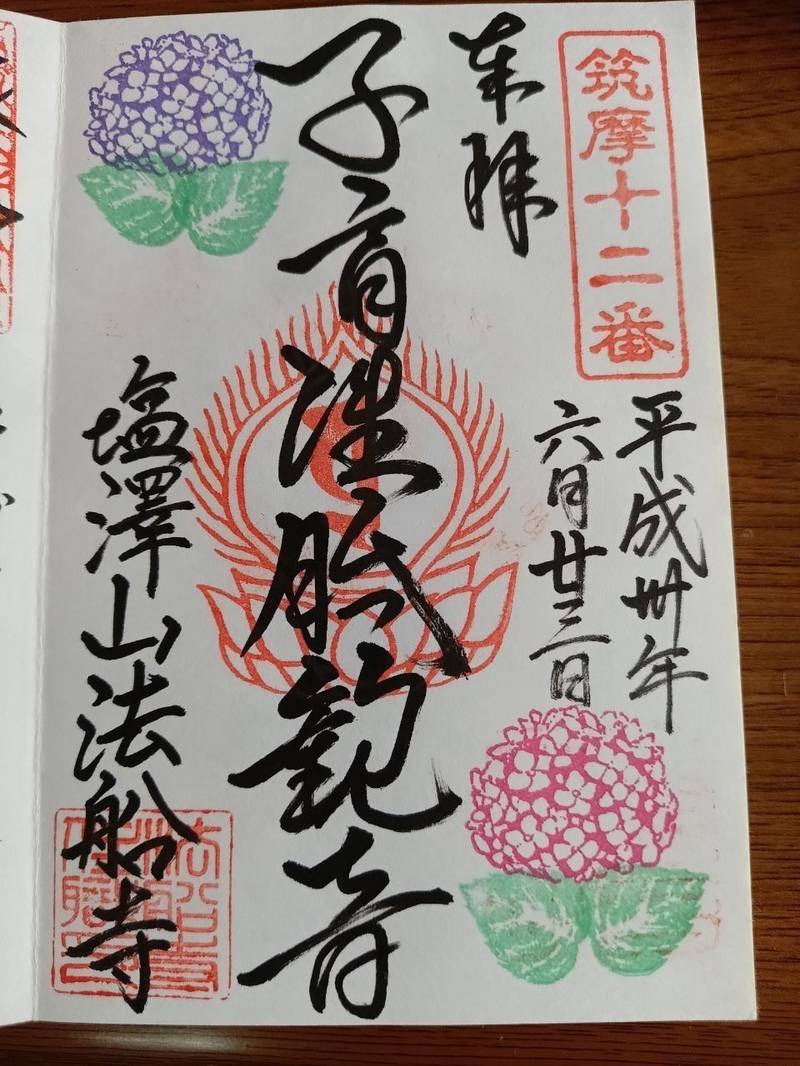 筑摩十二番
奉拝
平成卅年
六月廿三日
子育准胝観音
塩澤山法船寺